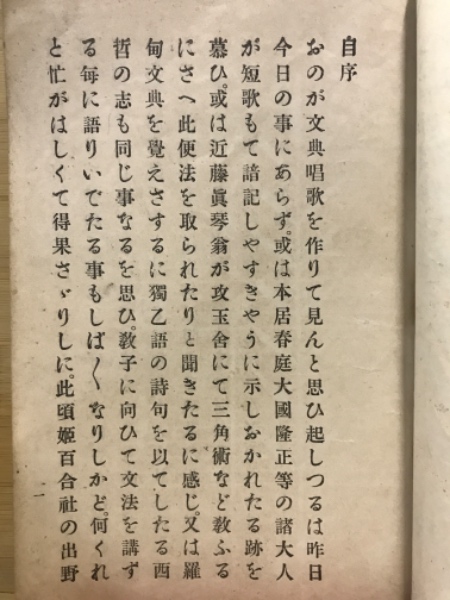 自序
おのが文典唱歌を作りて見んと思ひ起しつるは昨日
今日の事にあらず。或は本居春庭大國隆正等の諸大人
が短歌もて諳記しやすきやうに示しおかれたる跡を
慕ひ。或は近藤眞琴翁が攻玉舍にて三角術など敎ふる
にさへ此便法を取られたりと聞きたるに感じ。又は羅
甸文典を覺えさするに獨乙語の詩句を以てしたる西
哲の志も同じ事なるを思ひ。敎子に向ひて文法を講ず
る每に語りいでたる事もしば〱なりしかど。何くれ
と忙がはしくて得果さゞりしに。此頃姬百合社の出野
一